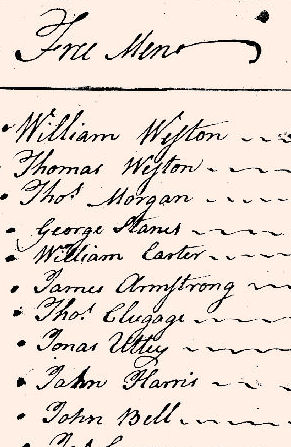 Free Men
William Weston
Thomas Weston
Thos Morgan
George Stanes
William Carter
James Armstrong
Thos Clugage
Jonas Utley
John Harris
John Bell